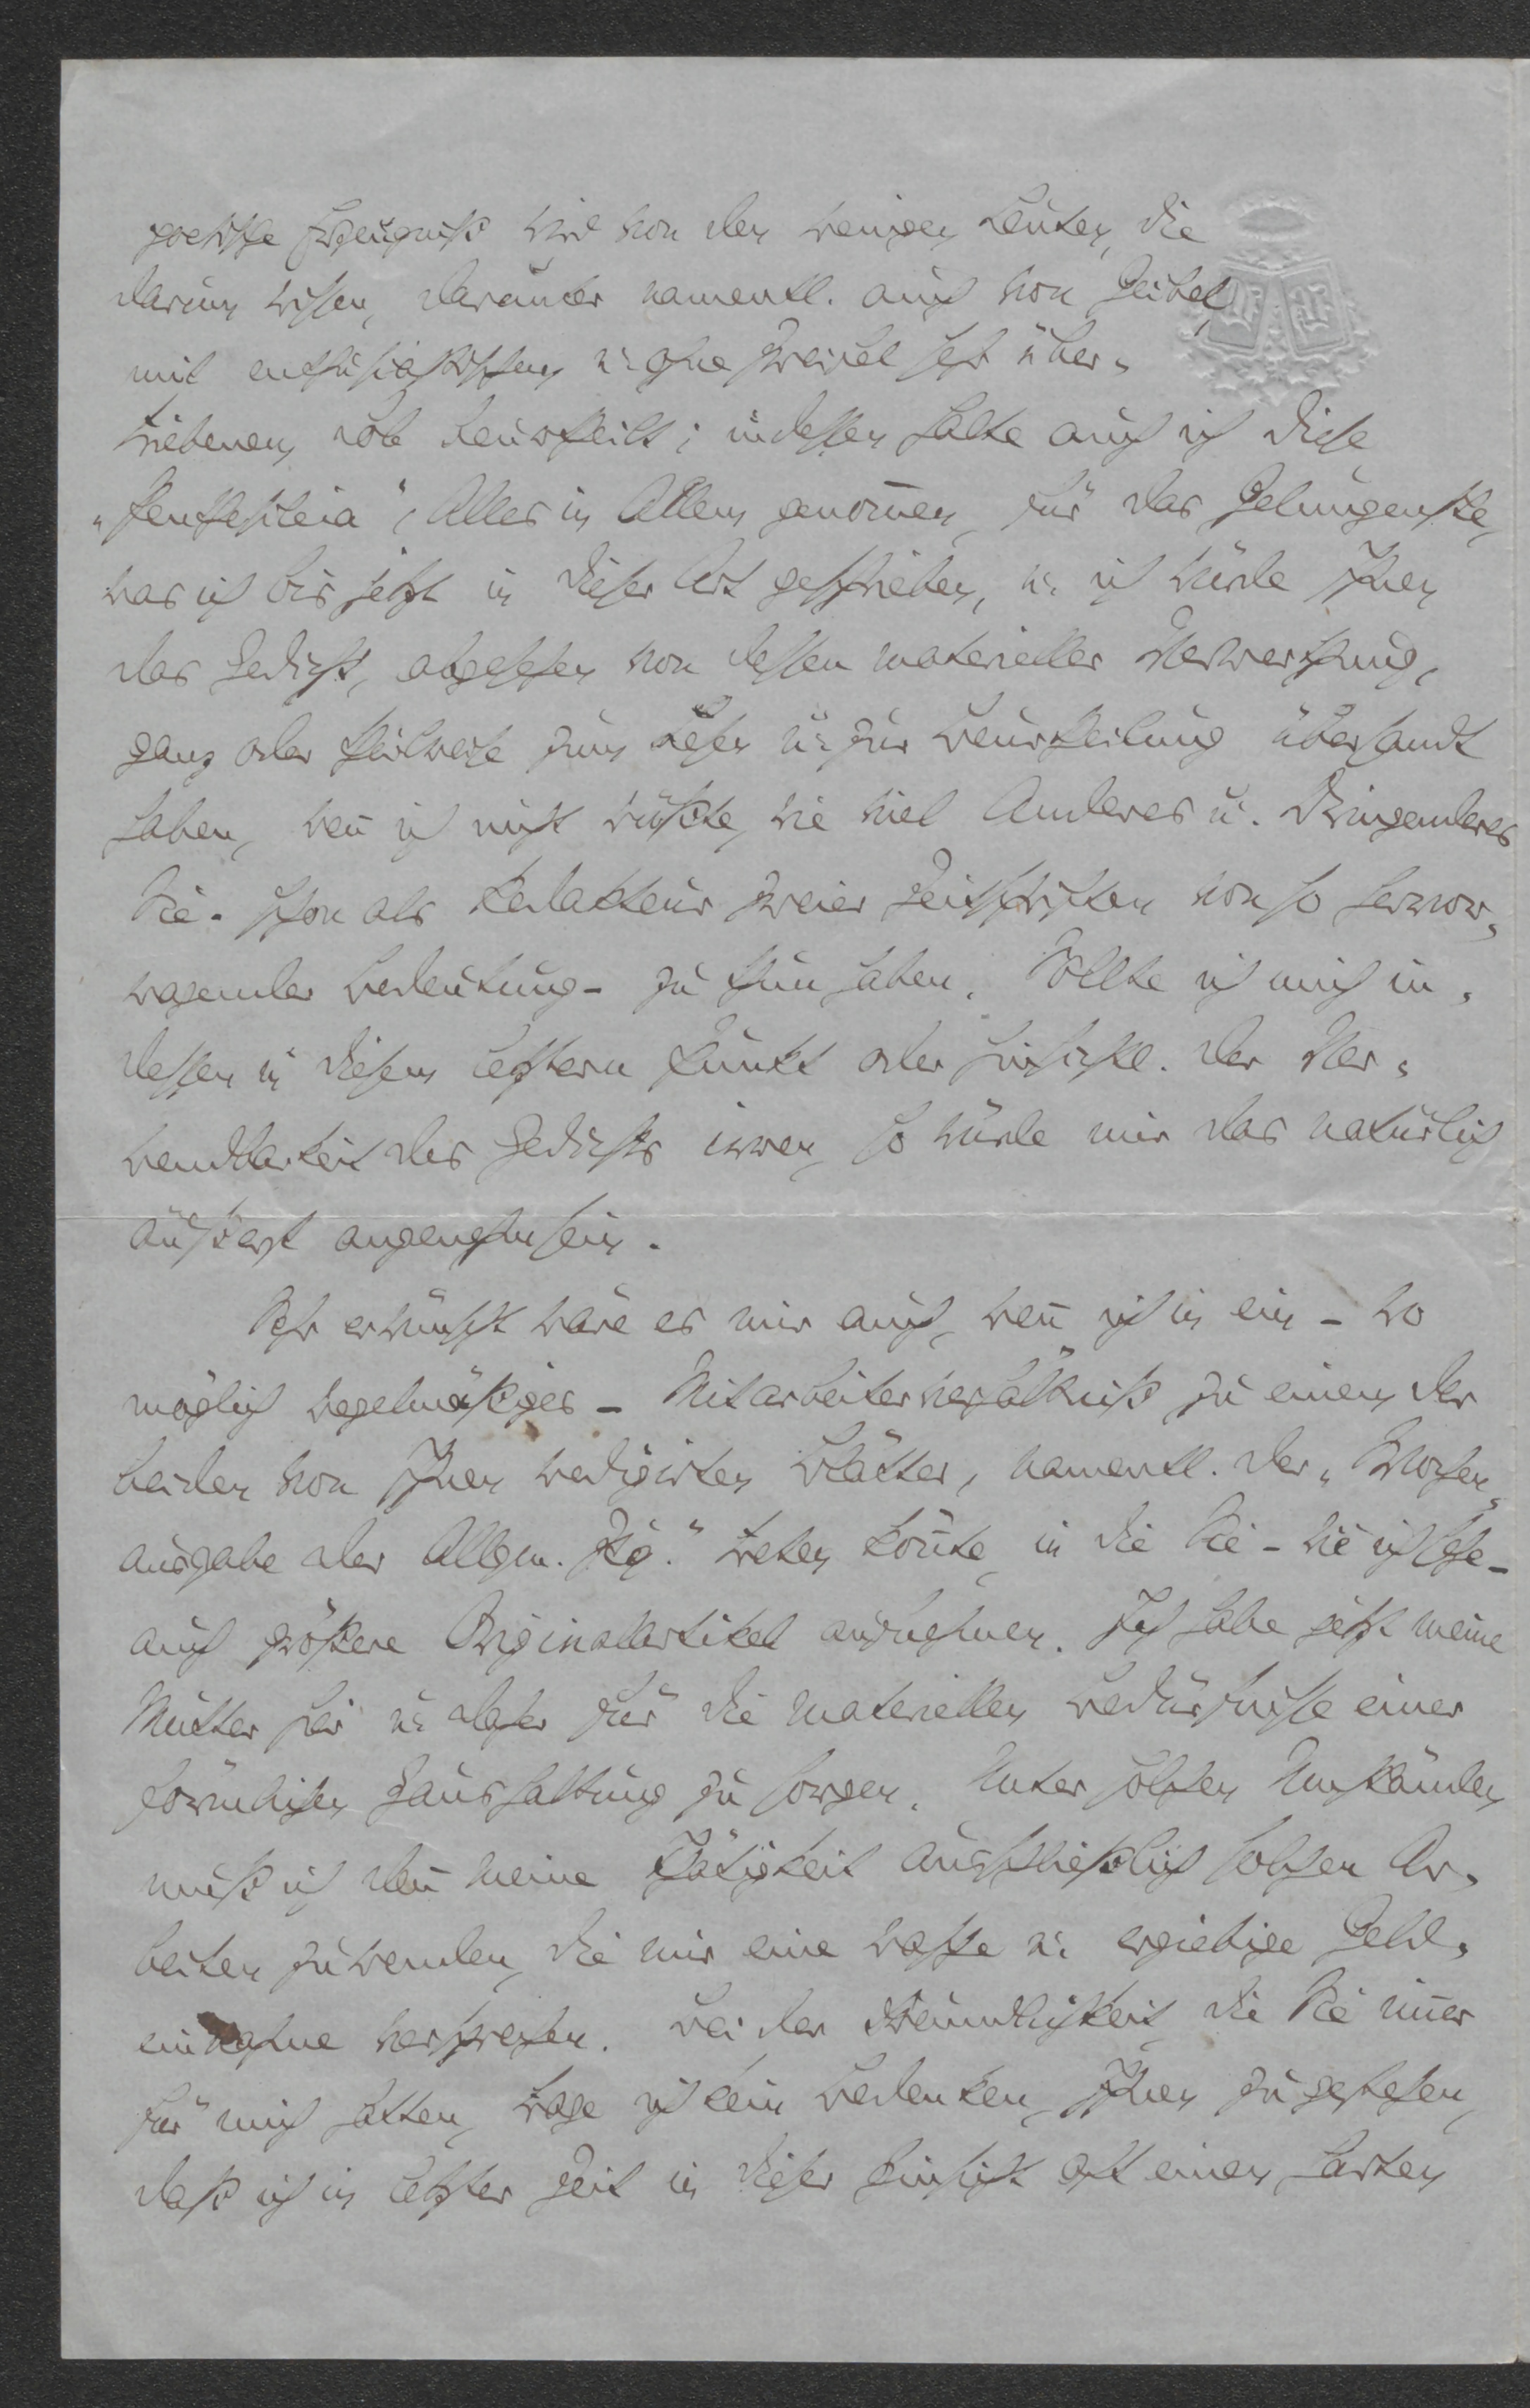 poetische Erzeugniß wird von den wenigen Leuten, die
darum wissen, darunter namentl. auch von Geibel,
mit enthusiastischem u. ohne Zweifel sehr über-
triebenem Lob beurtheilt; indessen halte auch ich diese
„Penthesileia“, Alles in Allem genom̄en, für das Gelungenste,
was ich bis jetzt in dieser Art geschrieben, u. ich würde Ihnen
das Gedicht, abgesehen von dessen materieller Verwerthung,
ganz oder theilweise zum Lesen u. zur Beurtheilung übersandt
haben, wen̄ ich nicht wüßte, wie viel Anderes u. Dringenderes
Sie - schon als Redakteur zweier Zeitschriften von so hervor-
ragender Bedeutung - zu thun haben. Sollte ich mich in-
dessen in diesem letztern Punkt oder hinsichtl. der Ver-
wendbarkeit des Gedichts irren, so würde mir das natürlich
äußerst angenehm sein.
Sehr erwünscht wäre es mir auch, wen̄ ich in ein - wo
möglich regelmäßiges - Mitarbeiterverhältniß zu einem der
beiden von Ihnen redigirten Blätter, namentl. der „Wochen-
ausgabe der Allgem. Ztg.“ treten kön̄te, in die Sie - wie ich sehe -
auch größere Originalartikel aufnehmen. Ich habe jetzt meine
Mutter hier u. daher für die materiellen Bedürfnisse einer
förmlichen Haushaltung zu sorgen. Unter solchen Umständen
muß ich den̄ meine Thätigkeit ausschließlich solchen Ar-
beiten zuwenden, die mir eine rasche u. ergiebige Geld-
einnahme versprechen. Bei der Freundlichkeit, die Sie im̄er
für mich hatten, trage ich kein Bedenken, Ihnen zu gestehen,
daß ich in letzter Zeit in dieser Hinsicht oft einen harten